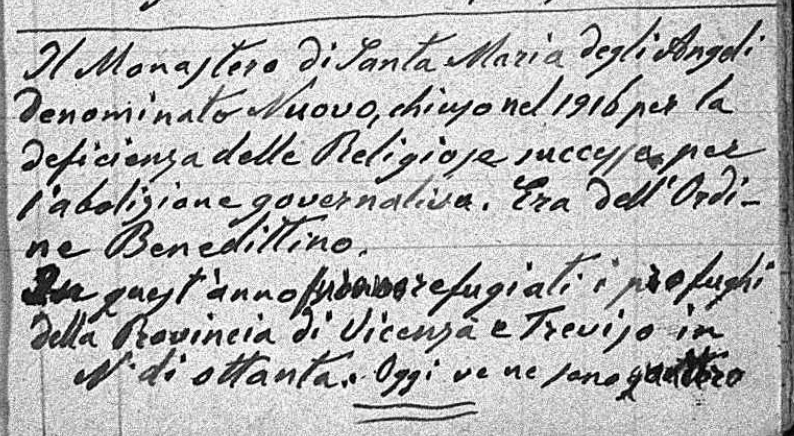 Il Monastero di Santa Maria degli Angeli
denominato Nuovo, chiuso nel 1916 per la
deficienza delle Religiose successa per
l'abolizione governativa. Era dell'Ordi-
ne Benedittino.
In quest'anno furono refugiati i profughi
della Provincia di Vicenza e Treviso in
N. di ottanta. Oggi ve ne sono quattro